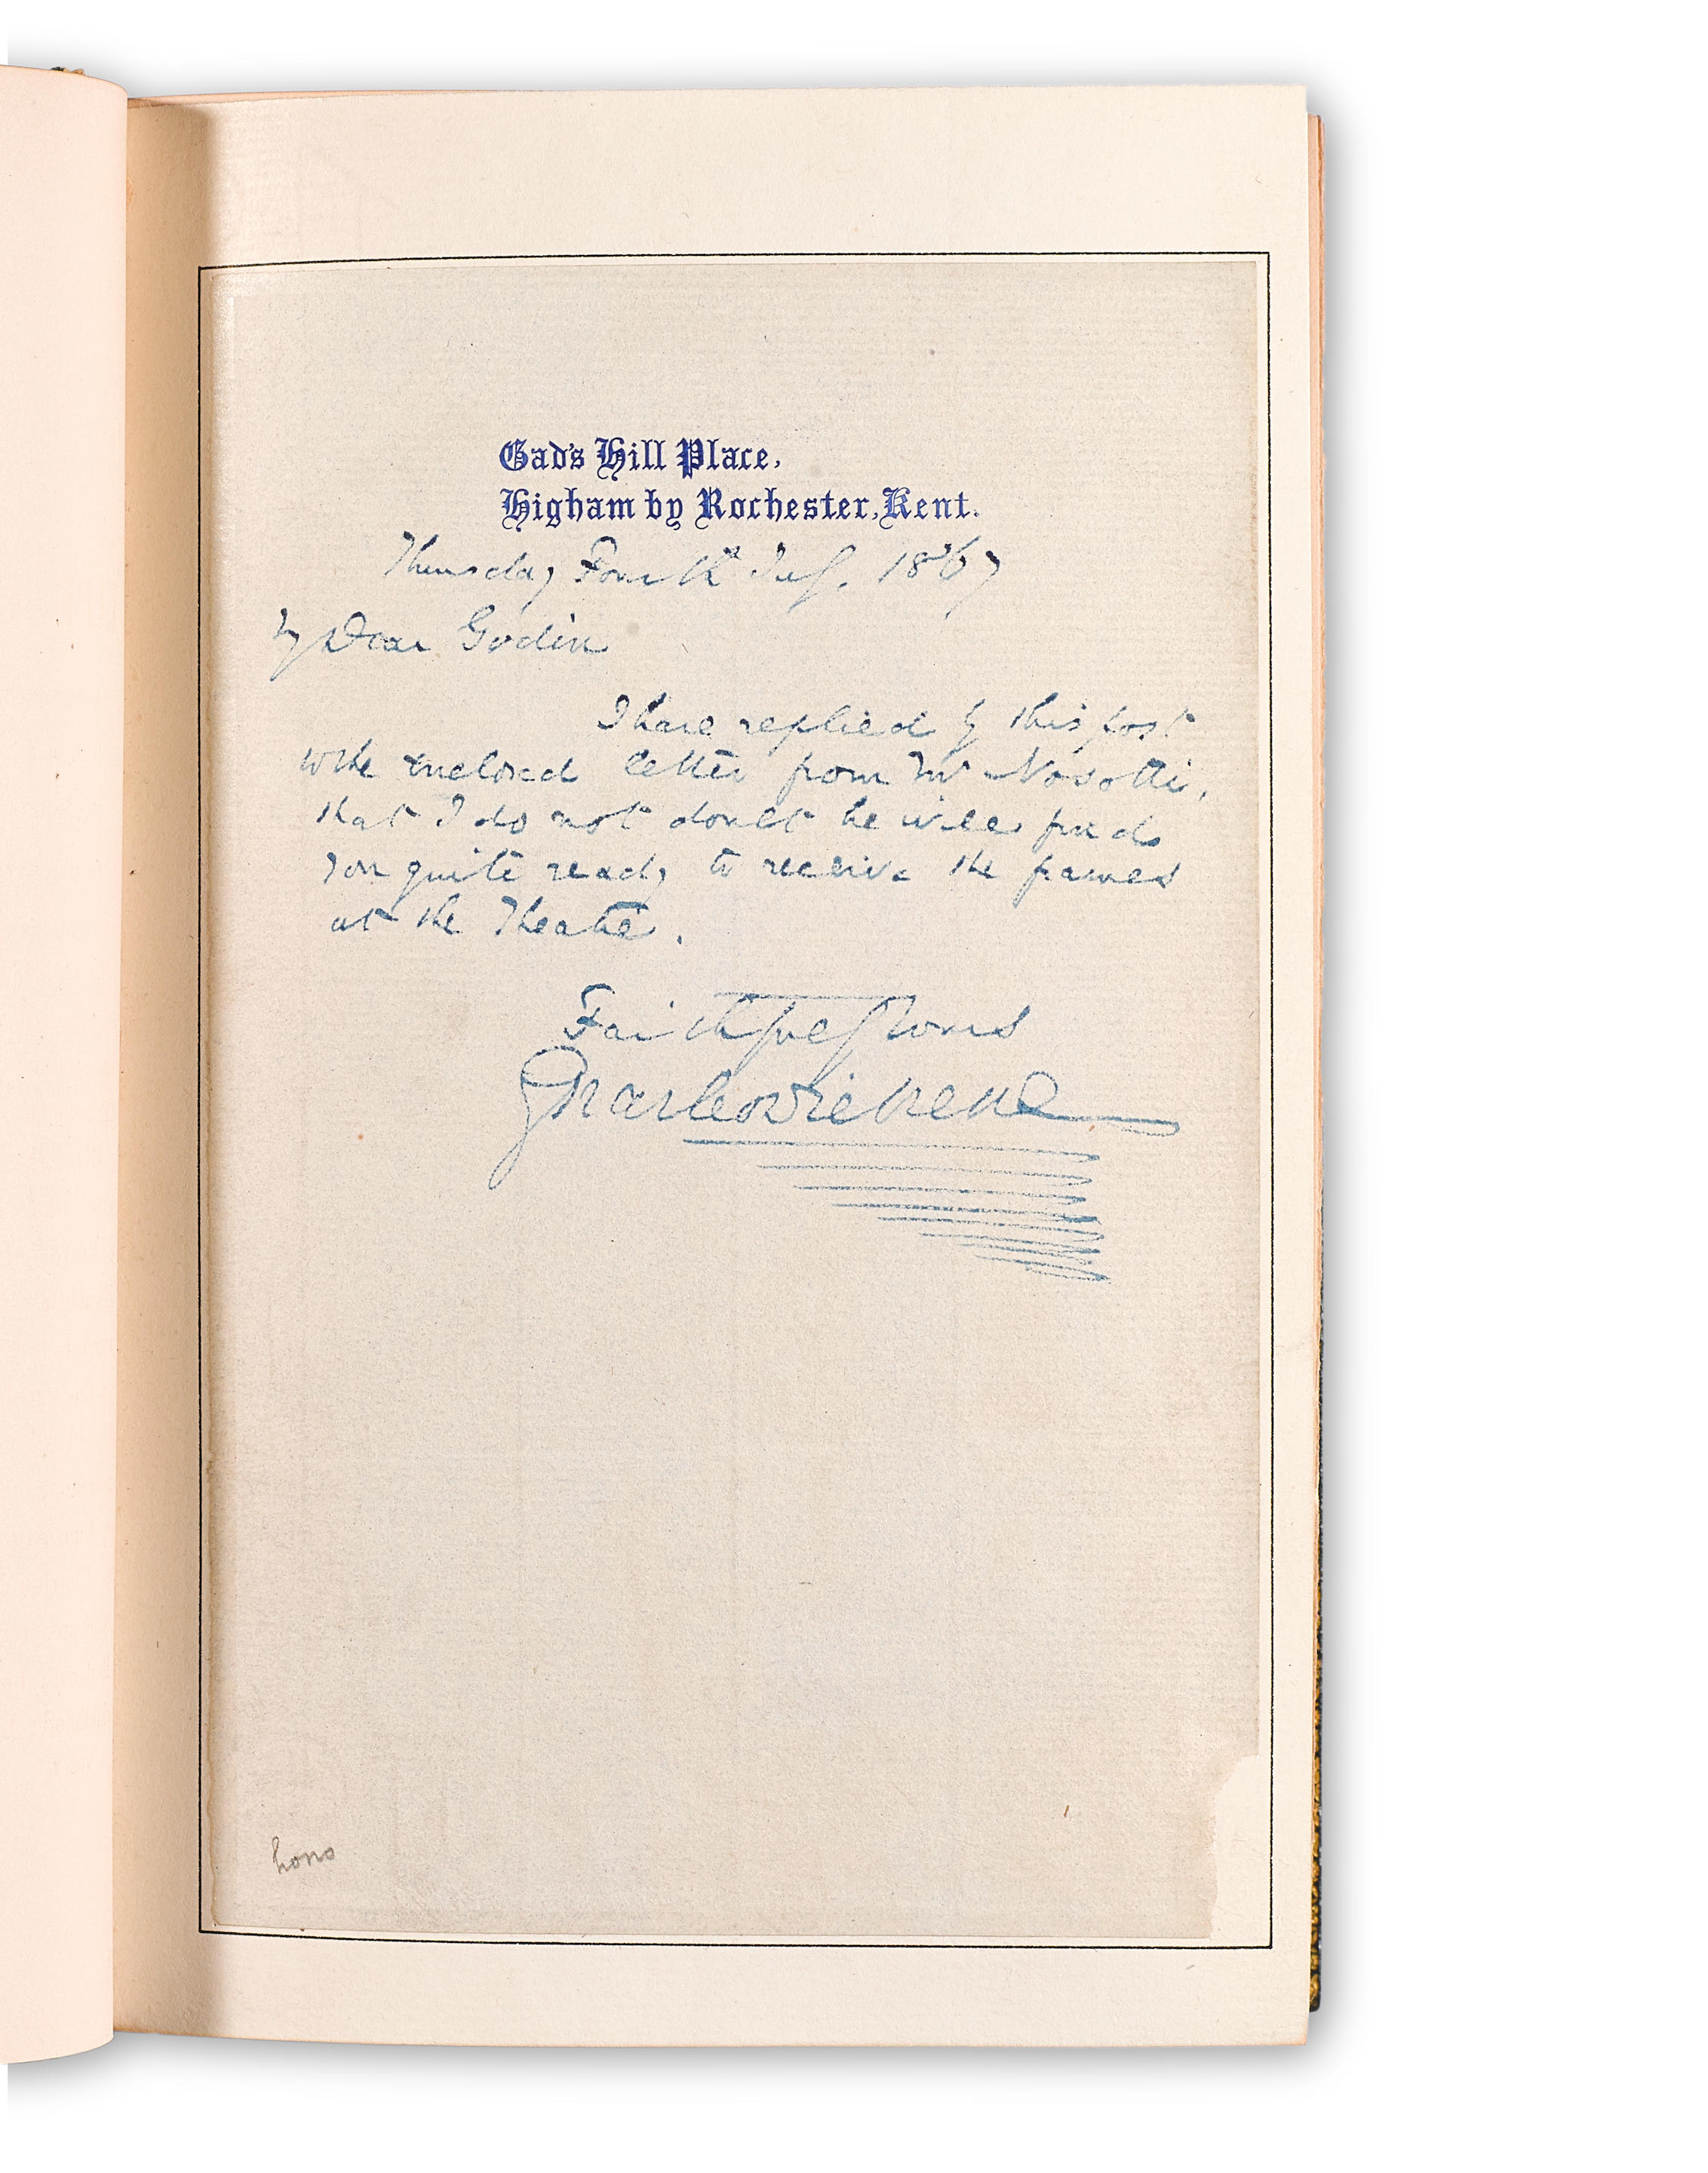 Gad's Hill Place,
Higham by Rochester, Kent.
Thursday Fourth July. 1867
My Dear Godin
I have replied by this post
to the enclosed letter from Mr Nosotti,
that I do not doubt he will find
you quite ready to receive the frames
at the Theatre.
Faithfully Yours
Charles Dickens